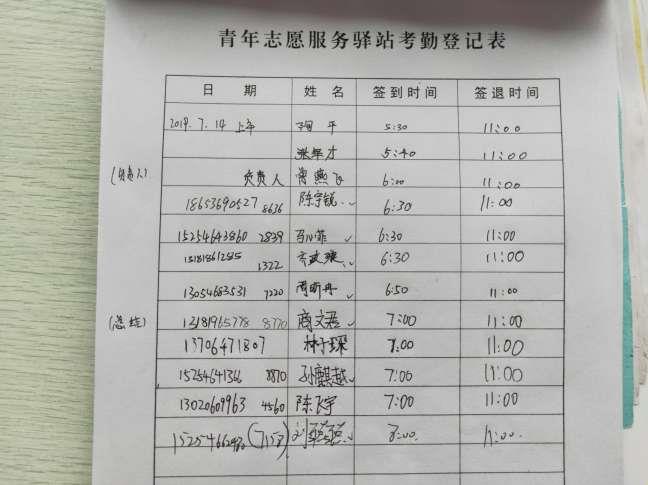 青年志愿服务驿站考勤登记表
日 期 姓 名 签到时间 签退时间
2019. 7. 14 上午 平 5:30 11:00
张年才 5:40 11:00
(负责人) 负责人 曾燕飞 6:00 11:00
18653690527 8636 陈宇锐 6:30 11:00
15254643860 2839 6:30 11:00
1322 6:30 11:00
13054683531 7220 周昕冉 ✓ 6:50 11:00
(总结) 13181965778 8770 商文君 ✓ 7:00 11:00
13706471807 林子琛 7:00 11:00
15254641366 8870 孙麒越 ✓ 7:00 11:00
13020609963 4560 陈飞宇 7:00 11:00
(7158) 刘 8:00. 11:00.